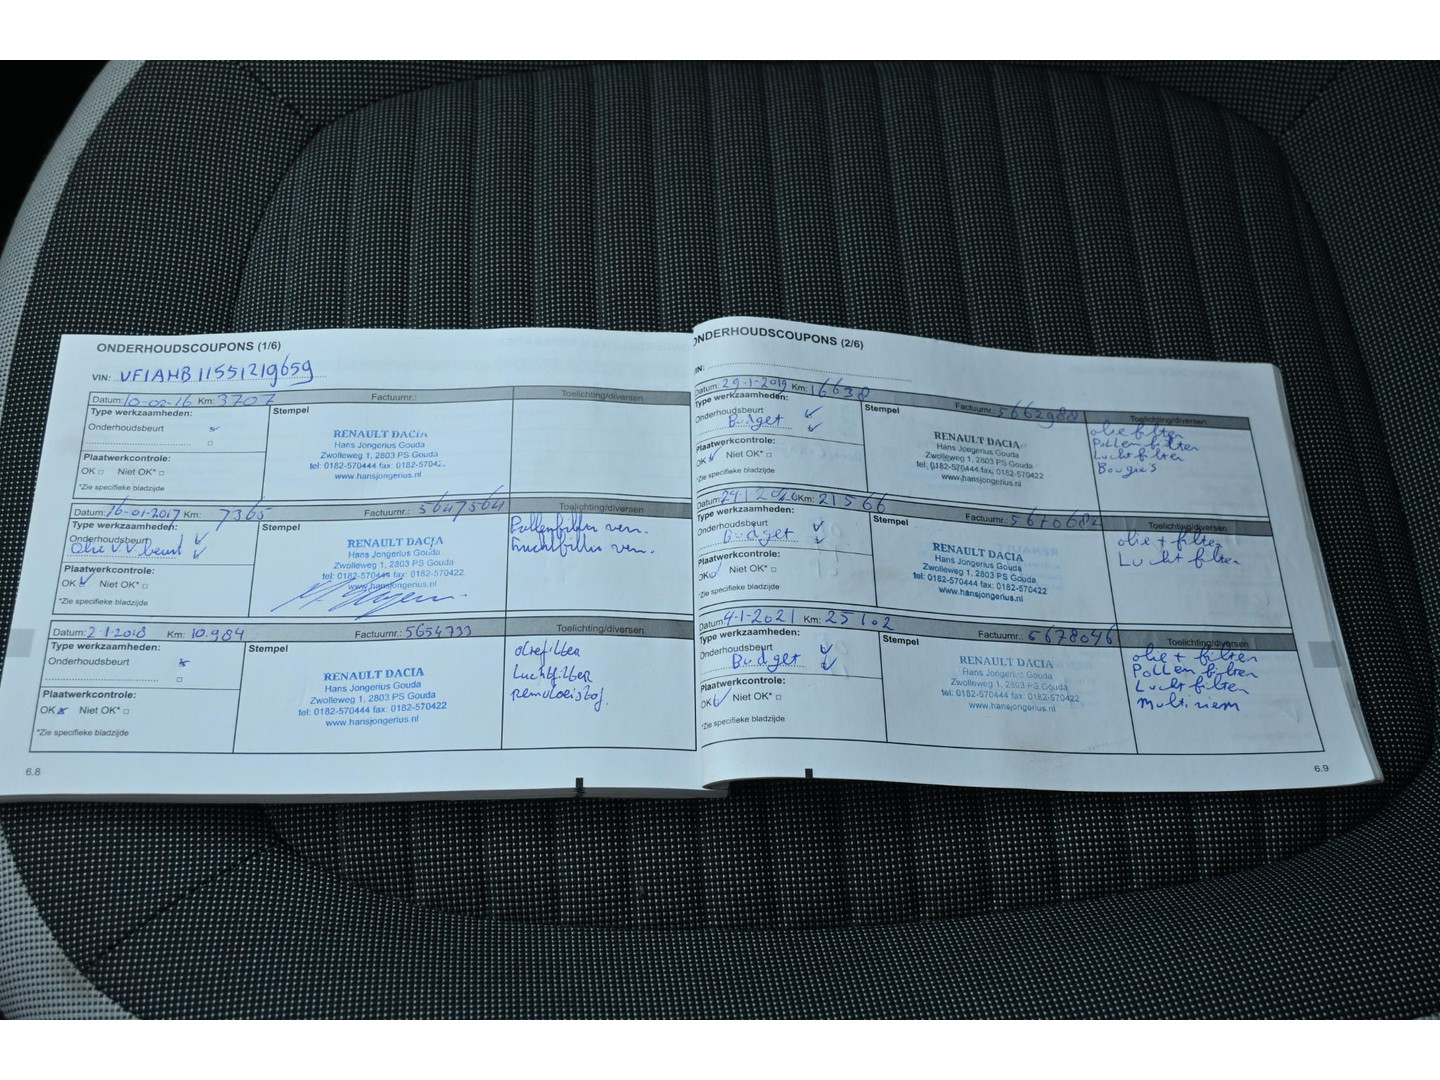 ONDERHOUDSCOUPONS (1/6)
VIN: VF1AHB11551219659
Datum: 10-02-16 Km: 3707 Factuurnr.: Toelichting/diversen
Type werkzaamheden:
Onderhoudsbeurt
Stempel
Plaatwerkcontrole:
OK □ Niet OK* □
*Zie specifieke bladzijde
RENAULT DACIA
Hans Jongerius Gouda
Zwolleweg 1, 2803 PS Gouda
tel: 0182-570444 fax: 0182-57042
www.hansjongerius.nl
Datum: 16-01-2017 Km: 7365 Factuurnr.: 5647564 Toelichting/diversen
Type werkzaamheden:
Onderhoudsbeurt
Stempel
Plaatwerkcontrole:
OK Niet OK* □
*Zie specifieke bladzijde
RENAULT DACIA
Hans Jongerius Gouda
Zwolleweg 1, 2803 PS Gouda
tel: 0182-570444 fax: 0182-570422
www.hansjongerius.nl
Pollenfilter verv.
Luchtfilter verv.
Datum: 2-1-2018 Km: 10.984 Factuurnr.: 5654733 Toelichting/diversen
Type werkzaamheden:
Onderhoudsbeurt
Stempel
Plaatwerkcontrole:
OK Niet OK* □
*Zie specifieke bladzijde
RENAULT DACIA
Hans Jongerius Gouda
Zwolleweg 1, 2803 PS Gouda
tel: 0182-570444 fax: 0182-570422
www.hansjongerius.nl
oliefilter
Luchtfilter
remvloeistof.
6.8
ONDERHOUDSCOUPONS (2/6)
VIN:
Datum: 29-1-2019 Km: 16638 Factuurnr.: 5662988 Toelichting/diversen
Type werkzaamheden:
Onderhoudsbeurt
Budget
Stempel
Plaatwerkcontrole:
OK Niet OK* □
*Zie specifieke bladzijde
RENAULT DACIA
Hans Jongerius Gouda
Zwolleweg 1, 2803 PS Gouda
tel: 0182-570444 fax: 0182-570422
www.hansjongerius.nl
olie filter
Pollen filter
Lucht filter
Bougie's
Datum: 29-1-2020 Km: 21566 Factuurnr.: 5670682 Toelichting/diversen
Type werkzaamheden:
Onderhoudsbeurt
Budget
Stempel
Plaatwerkcontrole:
OK Niet OK* □
*Zie specifieke bladzijde
RENAULT DACIA
Hans Jongerius Gouda
Zwolleweg 1, 2803 PS Gouda
tel: 0182-570444 fax: 0182-570422
www.hansjongerius.nl
olie + filter
Lucht filter
Datum: 4-1-2021 Km: 25102 Factuurnr.: 5678046 Toelichting/diversen
Type werkzaamheden:
Onderhoudsbeurt
Budget
Stempel
Plaatwerkcontrole:
OK Niet OK* □
*Zie specifieke bladzijde
RENAULT DACIA
Hans Jongerius Gouda
Zwolleweg 1, 2803 PS Gouda
tel: 0182-570444 fax: 0182-570422
www.hansjongerius.nl
olie + filter
Pollen filter
Lucht filter
Multi riem
6.9